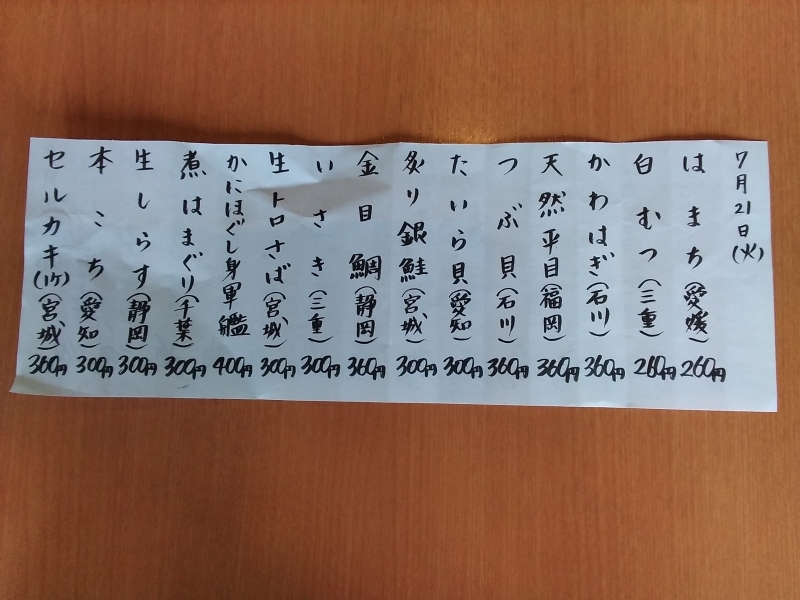 7月21日(火)
はまち(愛媛)260円
白むつ(三重)260円
かわはぎ(石川)360円
天然平目(福岡)360円
つぶ貝(石川)360円
たいら貝(愛知)300円
炙り銀鮭(宮城)300円
金目鯛(静岡)360円
いさき(三重)300円
生トロさば(宮城)300円
かにほぐし身軍艦400円
煮はまぐり(千葉)300円
生しらす(静岡)300円
本こち(愛知)300円
セルカキ(1ケ)(宮城)360円